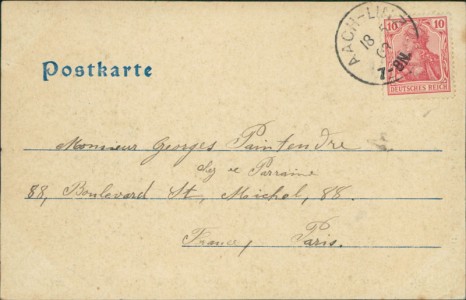 AACH-LINZ
18 5
7-8N.
10 10
DEUTSCHES REICH
Postkarte
Monsieur Georges Paintendre
chez Parraine
88, Boulevard St, Michel, 88.
France, Paris.